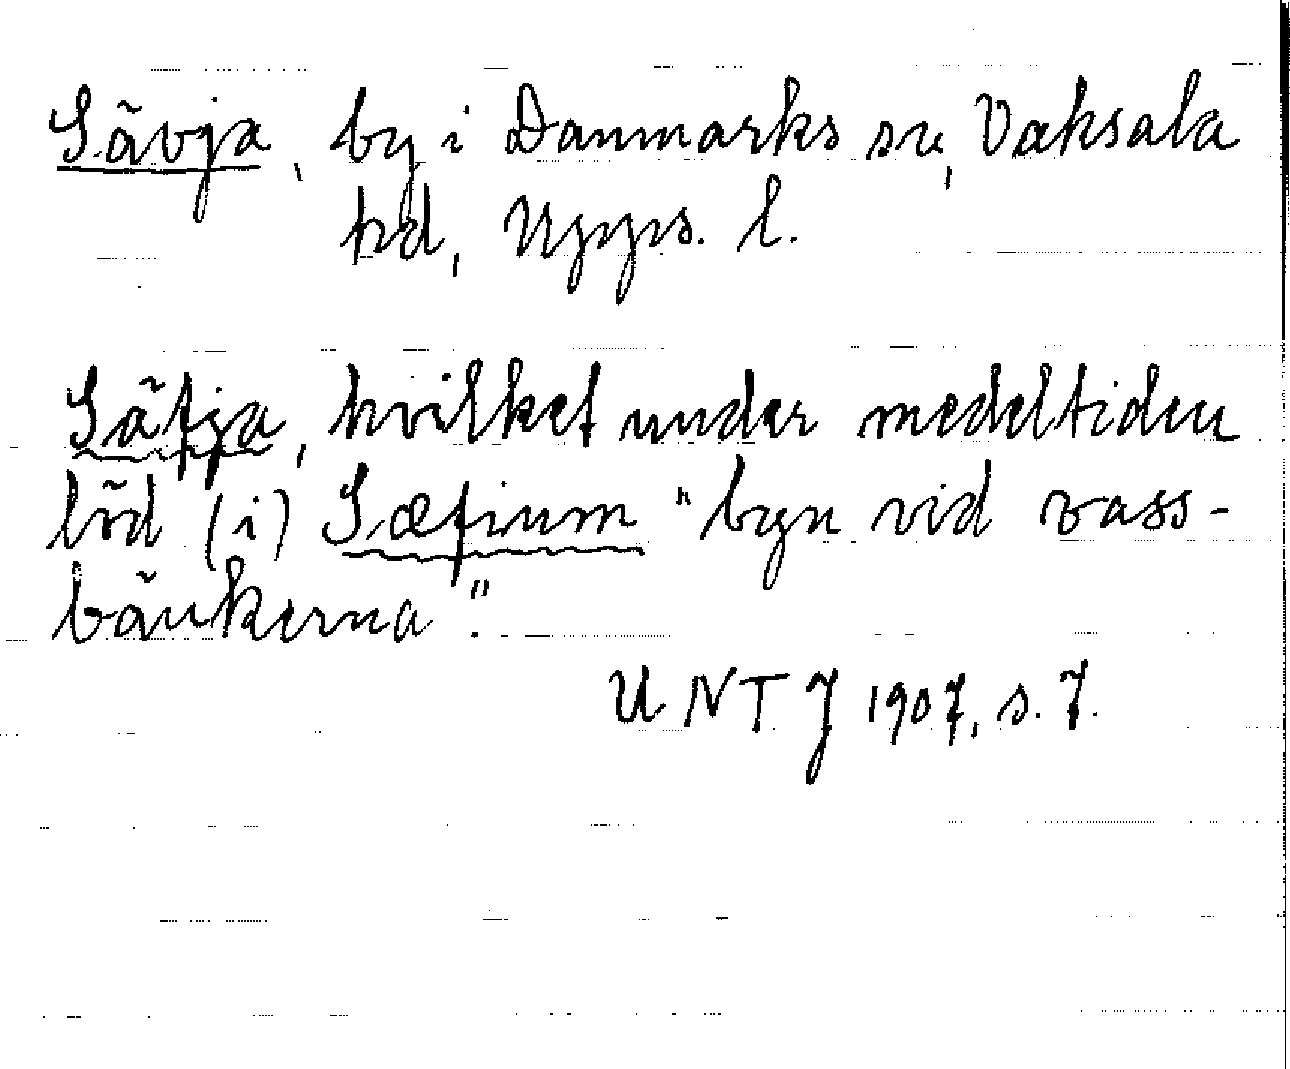 Sävja, by i Danmarks sn, Vaksala
hd, Upps. l.
Säfja, hvilket under medeltiden
löd (i) Sæfium "byn vid vass-
bänkerna".
UNTJ 1907, s. 7.